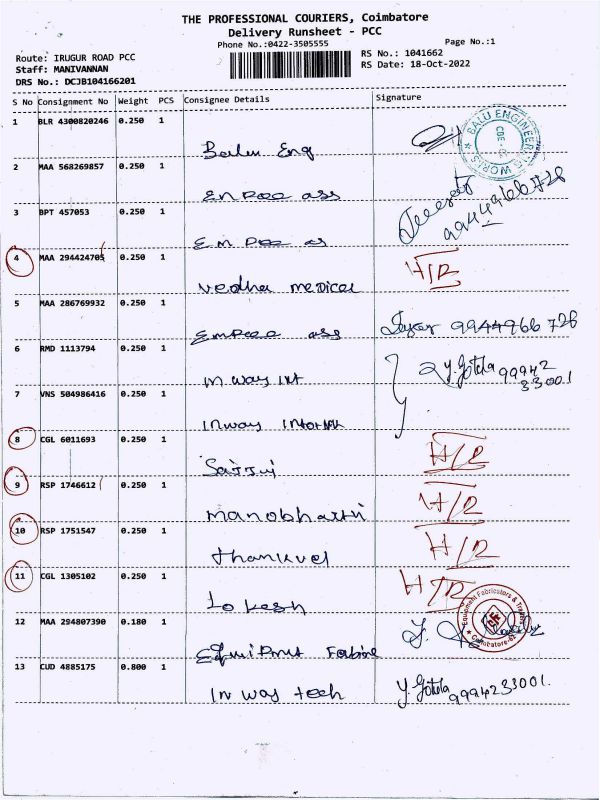 THE PROFESSIONAL COURIERS, Coimbatore
Delivery Runsheet - PCC
Phone No.:0422-3505555
Page No.:1
Route: IRUGUR ROAD PCC
Staff: MANIVANNAN
DRS No.: DCJB104166201
RS No.: 1041662
RS Date: 18-Oct-2022
S No Consignment No Weight PCS Consignee Details Signature
1 BLR 4300820246 0.250 1
Balu Eng
BALU ENGINEERING WORKS
CBE
2 MAA 568269857 0.250 1
Empee ass
9944966728
3 BPT 457053 0.250 1
Em Pee as
4 MAA 294424705 0.250 1
H/R
vedha medical
5 MAA 286769932 0.250 1
Empee ass
9944966728
6 RMD 1113794 0.250 1
In way Int
Y. Gotela 99942
33001
7 VNS 504986416 0.250 1
Inway
8 CGL 6011693 0.250 1
H/R
9 RSP 1746612 0.250 1
H/R
manobharthi
10 RSP 1751547 0.250 1
H/R
thankvel
11 CGL 1305102 0.250 1
H/R
Lokesh
Equipment Fabricators &
Coimbatore
12 MAA 294807390 0.180 1
13 CUD 4885175 0.800 1
In way tech
Y. Gotela
9994233001.